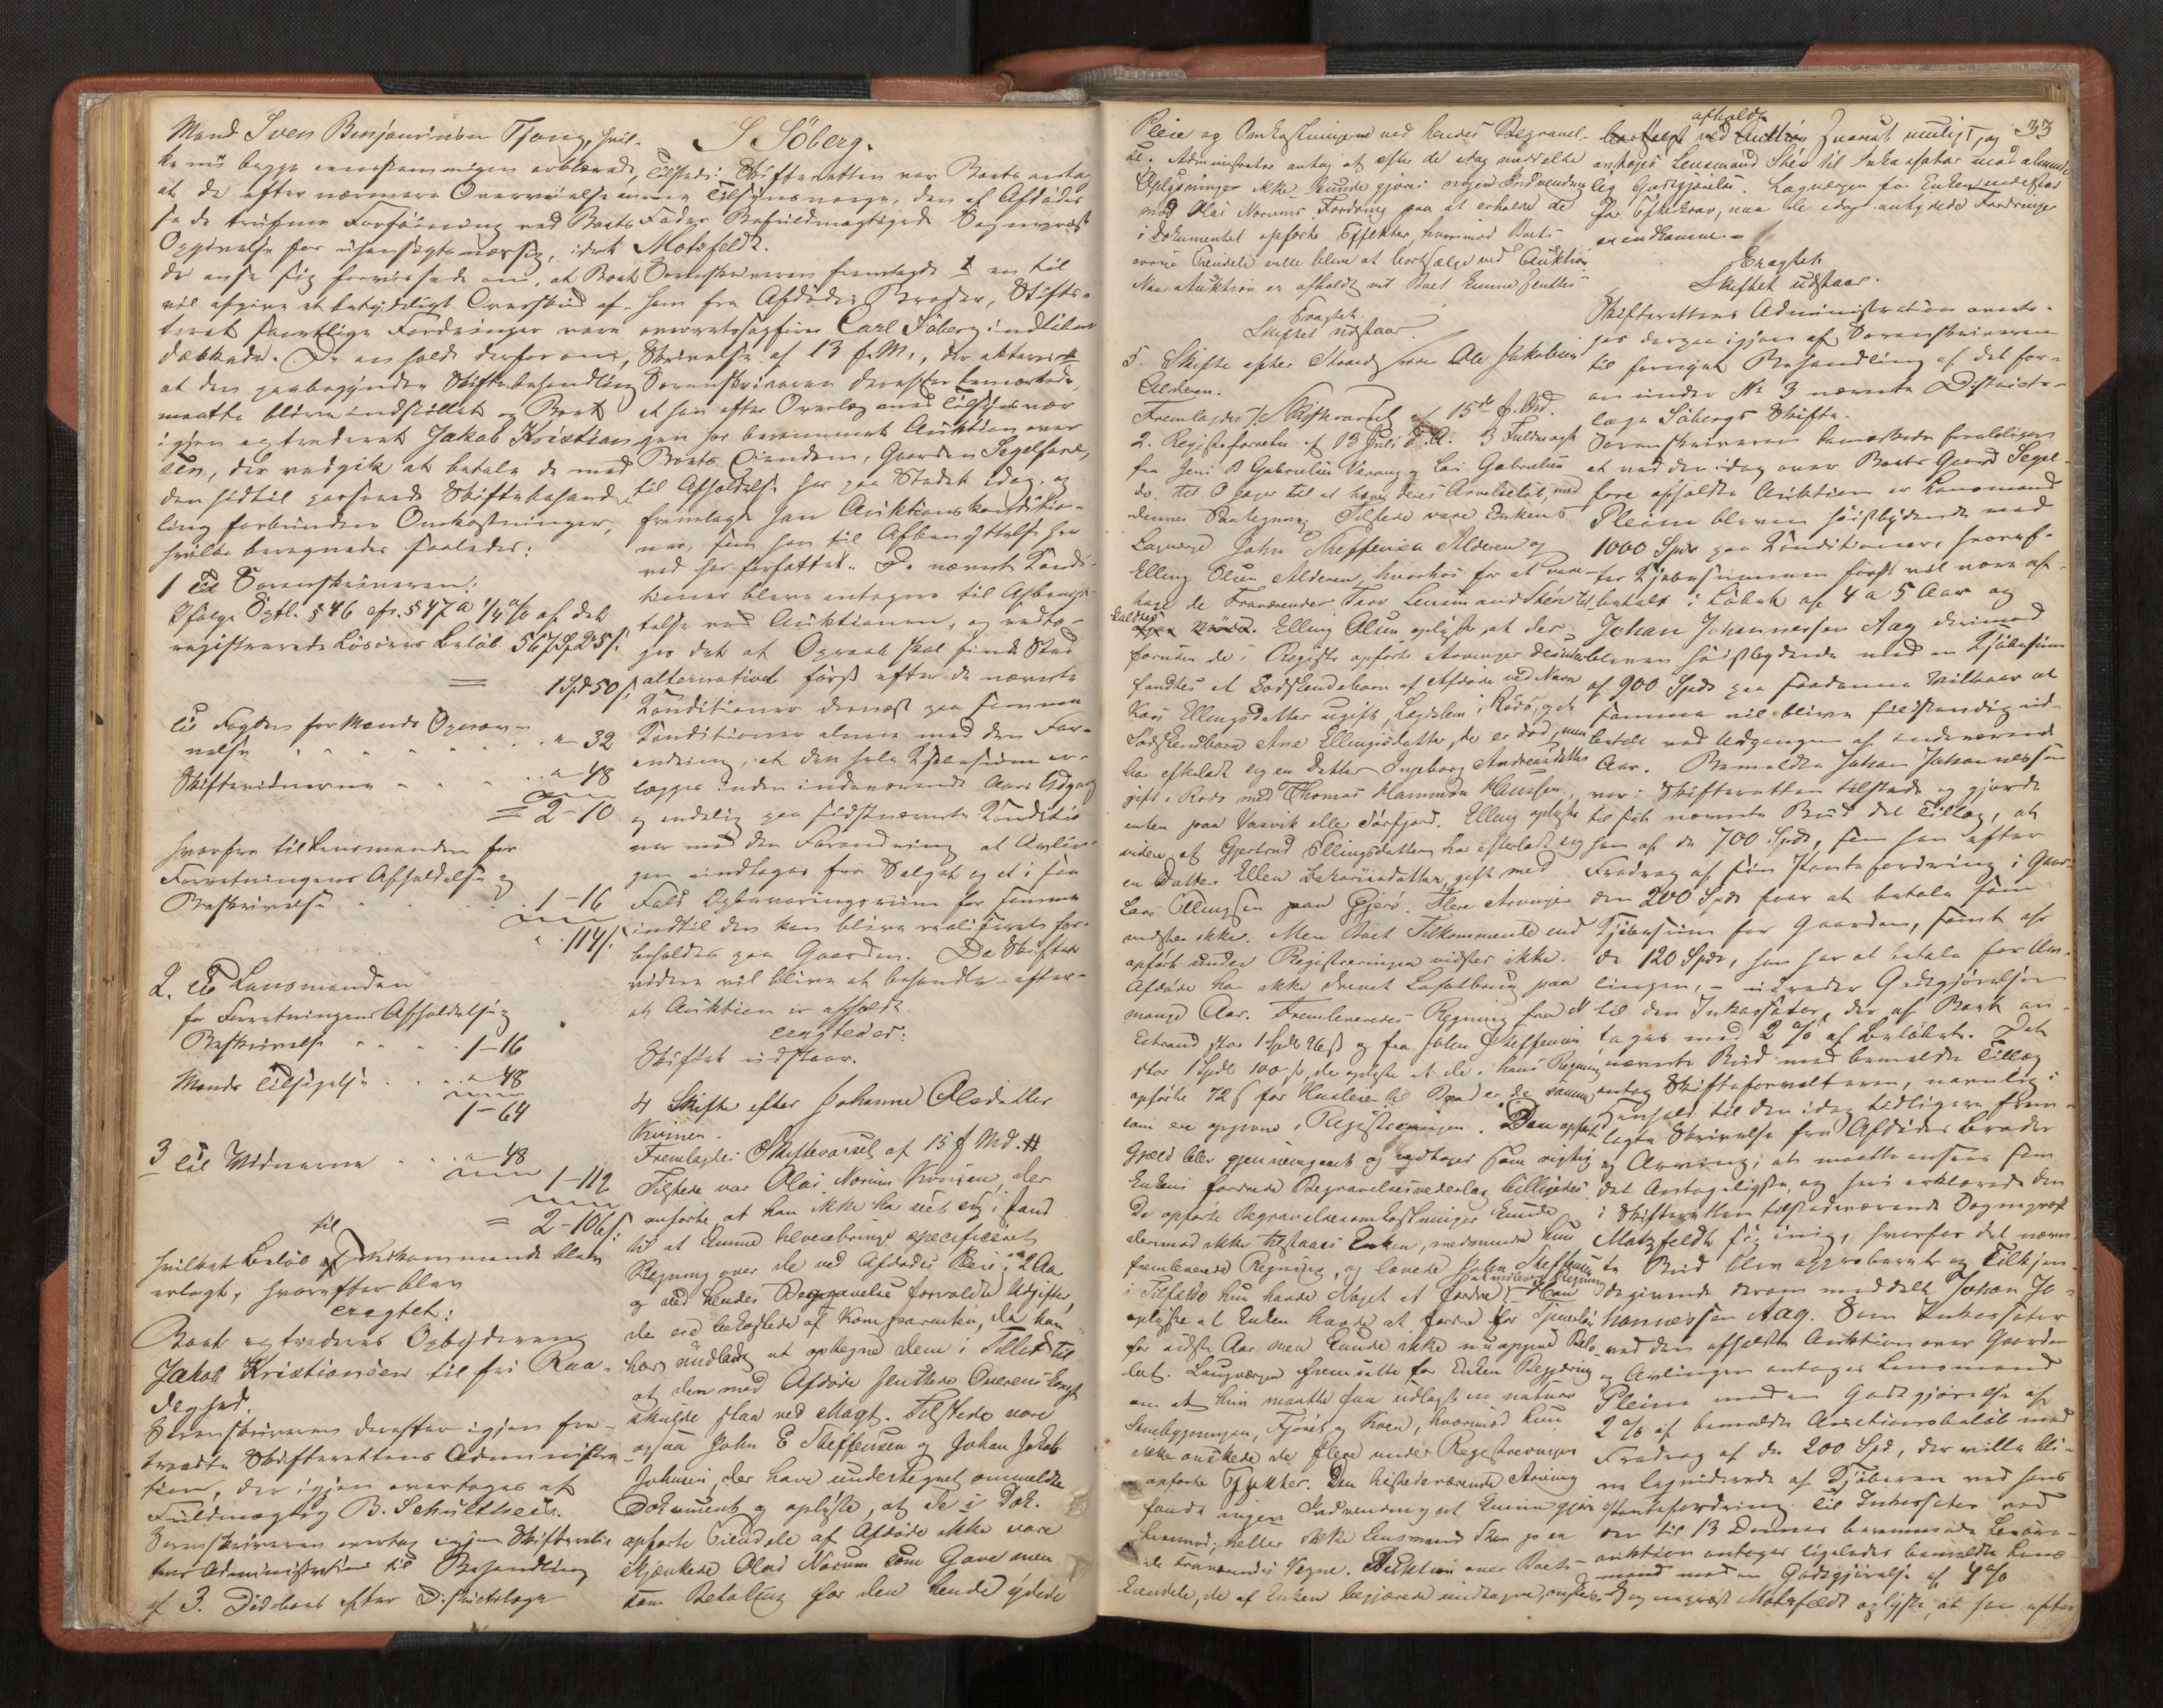 Mand Sven Benjaminsen Tjong, hvil-
ke nu begge eenstemmigen erklærede,
at de efter nærmere Overveielse ansee
den trufne Forføining ved Boets
Opgivelse for uhensigtsmæssig, idet
de anse sig forvissede om, at Boet
vil afgive et betydeligt Overskud af-
terat samtlige Fordringer vare
dækkede. De anholdt derfor om,
at den paabegyndte Skiftebehandling
maatte blive indstillet og Boet
igjen extraderet Jakob Kristian
sen, der vedgik at betale de med
den hidtil passerede Skiftebehand
ling forbundne Omkostninger,
hvilke beregnedes saaledes:
1 Til Sorenskriveren:
Ifølge Sptl. § 46 cfr. § 47 a 1/4 % af det
registrerede Løsøres Beløb 567 Sp 25 ß.
= 1 Spd 50 ß.
til Fogden for Mands Opnæv-
nelse " - 32
Skiftevidnerne " - 48
= 2 - 10
hvorfra til Lensmanden for
Forretningens Afholdelse og
Beskrivelse 1 - 16
" 114 ß.
2. Til Lensmanden
for Forretningens Afholdelse og
Beskrivelse 1 - 16
Mands Tilsigelse " 48
1 - 64
3 til Vidnerne " 48
1 - 112
= 2 - 106 ß.
hvilket Beløb til Vedkommende blev
erlagt, hvorefter blev
eragtet:
Boet extraderes Opbyderen
Jakob Kristiansen til fri Raa-
dighed.
Sorenskriveren derefter igjen fra-
traadte Skifterettens Administra
tion, der igjen overtoges af
Fuldmægtig B. Schultheis.
Sorenskriveren overtog igjen Skifteret-
tens Administration til Behandling
af 3. Dødsboet efter Distriktslæge
S Söberg.
Tilstede i Skifteretten var Boets antag
ne Tilsynsværge, den af Afdødes
Fader Befuldmægtigede Sogneprest
Motzfeldt.
Sorenskriveren fremlagde en til
ham fra Afdødes Broder, Stifts-
overretssagfører Carl Söberg indløben
Skrivelse af 13 f. M., der akteres
Sorenskriveren derefter bemærkede,
at han efter Overlæg med Tilsynsvær
gen har berammet Auktion over
Boets Eiendom, Gaarden Segelfore,
til Afholdelse her paa Stedet idag, og
fremlagde han Auktionskonditio-
ner, som han til Afbenyttelse her
ved har forfattet. De nævnte Kondi-
tioner bleve antagne til Afbenyt-
telse ved Auktionen, og vedto-
ges det at Opraab skal finde Sted
alternativt først efter de nævnte
Konditioner dernæst paa samme
Konditioner alene med den For-
andring, at den hele Kjøbesum er-
lægges inden indeværende Aars Udgang
og endelig paa sidstnævnte Konditio
ner med den Forandring at Avlin-
gen undtages fra Salget og at i saa
Fald Opbevaringsrum for samme
indtil den kan blive realiseret for-
beholdes paa Gaarden. Da Skiftet
videre vil blive at behandle efter-
at Auktion er afholdt
eragtedes:
Skiftet udstaar.
4 Skifte efter Johanne Olsdatter
Kvinen.
Fremlagdes Skiftevarsel af 15 f Md. #
Tilstede var Olai Norum Kvinen, der
anførte, at han ikke har seet sig i stand
til at kunne tilveiebringe specificeret
Regning over de ved Afdødes Pleie i 2 Aar
og ved hendes Begravelse forvoldte Udgifter,
der ere bekostede af Komparenten, da han
har undladt at optegne dem i Tillid til
at den med Afdøde sluttede Overenskomst
skulde staa ved Magt. Tilstede vare
ogsaa John E Steffensen og Johan Jakob
Johnsen, der have undertegnet ommeldte
Dokument og oplyste, at de i Dok.
opførte Eiendele af Afdøde ikke vare
skjænkede Olai Norum som Gave men
som Betaling for den hende ydede
Pleie og Omkostningerne ved hendes Begravel-
se. Administrator antog at efter de idag meddelte
Oplysninger ikke kunde gjøres nogen Indvending
mod Olai Norums Fordring paa at erholde de
i Dokumentet opførte Effekter, hvorimod Boets
øvrige Eiendele ville blive at bortsælge ved Auktion.
Naar Auktion er afholdt vil Boet kunne sluttes
Eragtet.
Skiftet udstaar.
5. Skifte efter Strandsidder Ole Jakobsen
Alderen.
Fremlagdes 1 Skiftevarsel af 15de f. Md.
2. Registerforretn. af 13 Juli d. A. 3 Fuldmagt
fra Jens B Gabrielsen Værang og Lars Gabrielsen
do. til O Jager til at hæve deres Arvebeløb, med
dennes Paategning. Tilstede vare Enkens
Laugværge John Steffensen Alderen og
Elling Olsen Alderen, hvorhos for at vare-
tage de Fraværendes Tarv Lensmand Stén til
kaldtes. Elling Olsen oplyste, at der
foruden de i Registr opførte Arvinger desuden
fandtes et Sødskendebarn af Afdøde ved Navn
Karen Ellingsdatter ugift, Lægdslem i Rödö, og et
Sødskendbarn Ane Ellingsdatter, der er død, men
har efterladt sig en Datter Ingeborg Andreasdatter
gift i Rödö med Thomas Hammon Hanssen,
enten paa Vasvik eller Sörfjord. Elling oplyste
videre, at Gjertrud Ellingsdatter har efterladt sig
en Datter Ellen Zakariasdatter gift med
Lars Ellingsen paa Gjerö. Flere Arvinger
vidstes ikke. Mere Boet Tilkommende end
opført under Registreringen vidstes ikke.
Afdøde har ikke drevet Lofotbrug paa
mange Aar. Fremleveredes Regning fra
Edvard stor 1 Spd 96 ß og fra John Steffensen
stor 1 Spd 100 ß, der oplyste at de i hans Regning
opførte 72 ß for Husleie til Baad er de samme,
som ere opgivne i Registreringen. Den opførte
Gjæld blev gjennemgaaet og vedtoges som rigtig
Enkens fordrede Begravelsesvederlag billigedes
De opførte Begravelsesomkostninger kunde
derimod ikke tilstaaes Enken, medmindre hun
fremleverede Regning, og lovede John Steffensen
i Tilfælde hun havde Noget at fordre at indlevere Regning. Han
oplyste at Enken havde at fordre for Tjenerløn
for sidste Aar men kunde ikke nu opgive Belø-
bet. Laugværgen fremsatte for Enken Begjæring
om at hun maatte faa udlagt in natura
Stuebygningen, Fjøset og Koen, hvorimod hun
ikke ønskede de flere under Registreringen
opførte Effekter. Den tilstedeværende Arving
fandt ingen Indvending at kunne gjøre
herimod; heller ikke Lensmand Stén paa
de Fraværendes Vegne. Auktion over Boets
Eiendele, de af Enken begjærede undtagne, ønskedes
33
afholdt snarest muligt, og
antoges Lensmand Stén til Inkassator mod alminde
lig Godtgjørelse. Laugværgen for Enken indestod
for Efterkrav, naar de idag antydede Fordringer
ere indkomne.
Eragtet:
Skiftet udstaar.
Skifterettens Administration overto-
ges derpaa igjen af Sorenskriveren
til fornyet Behandling af det for-
an under No 3 nævnte Distrikts-
læge Söbergs Skifte.
Sorenskriveren bemærkede foreløbigen
at ved den idag over Boets Gaard Segel-
fore afholdte Auktion er Lensmand
Pleine bleven høistbydende med
1000 Spd paa Konditioner, hvoref-
ter Kjøbesummen først vil være af-
betalt i Løbet af 4 a 5 Aar og
Johan Johannessen Aag derimod
bleven høistbydende med en Kjøbesum
af 900 Spd paa saadanne Vilkaar at
samme vil blive fuldstændig ud-
betalt ved Udgangen af indeværende
Aar. Bemeldte Johan Johannessen
var i Skifteretten tilstede og gjorde
til sit nævnte Bud det Tillæg, at
han af de 700 Spd, som han efter
Fradrag af sin Panteforfordring i Gaar-
den 200 Spd faar at betale som
Kjøbesum for Gaarden, samt af
de 120 Spd, han har at betale for Av-
lingen, - udreder Godtgjørelsen
til den Inkassator, der af Boet an-
tages med 2 % af Beløbet. Det
nævnte Bud med bemeldte Tillæg
antog Skifteforvalteren, navnlig i
Henhold til den idag tidligere frem-
lagte Skrivelse fra Afdødes Broder
og Arving, at maatte ansees som
det Antageligste, og heri erklærede den
i Skifteretten tilstedeværende Sogneprest
Motzfeldt sig enig, hvorfor det nævn-
te Bud blev approberet og Tilkjen-
degivende derom meddelt Johan Jo-
hannessen Aag. Som Inkassator
ved den afholdte Auktion over Gaarden
og Avlingen antages Lensmand
Pleine mod en Godtgjørelse af
2 % af bemeldte Auctionsbeløb med
Fradrag af de 200 Spd, der ville bli-
ve liqviderede af Kjøberen ved hans
Pantefordring. Til Inkassator ved
den til 13 Dennes berammede Løsøre-
auktion antages ligeledes bemeldte Lens
mand mod en Godtgjørelse af 4 %
Sogneprest Motzfeldt oplyste, at han efter